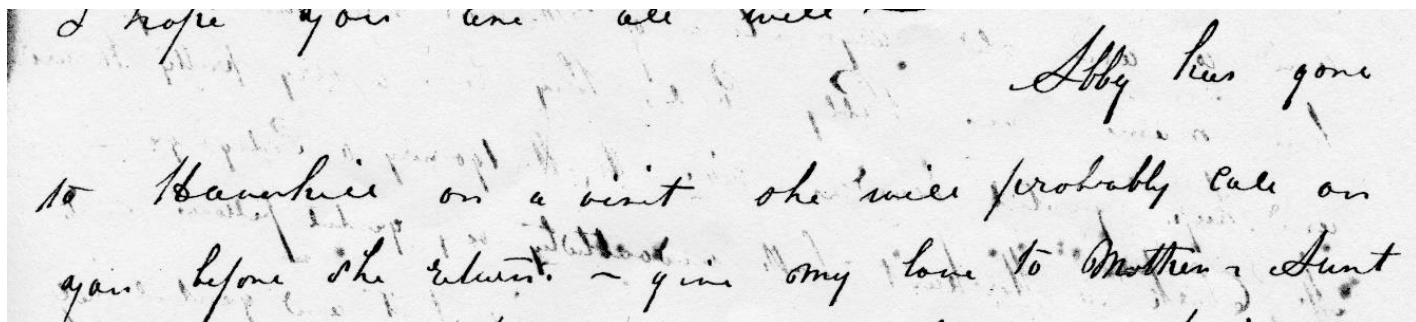 I hope you are all well —
Abby has gone
to Haverhill on a visit she will probably call on
you before she returns. – give my love to Mother & Aunt